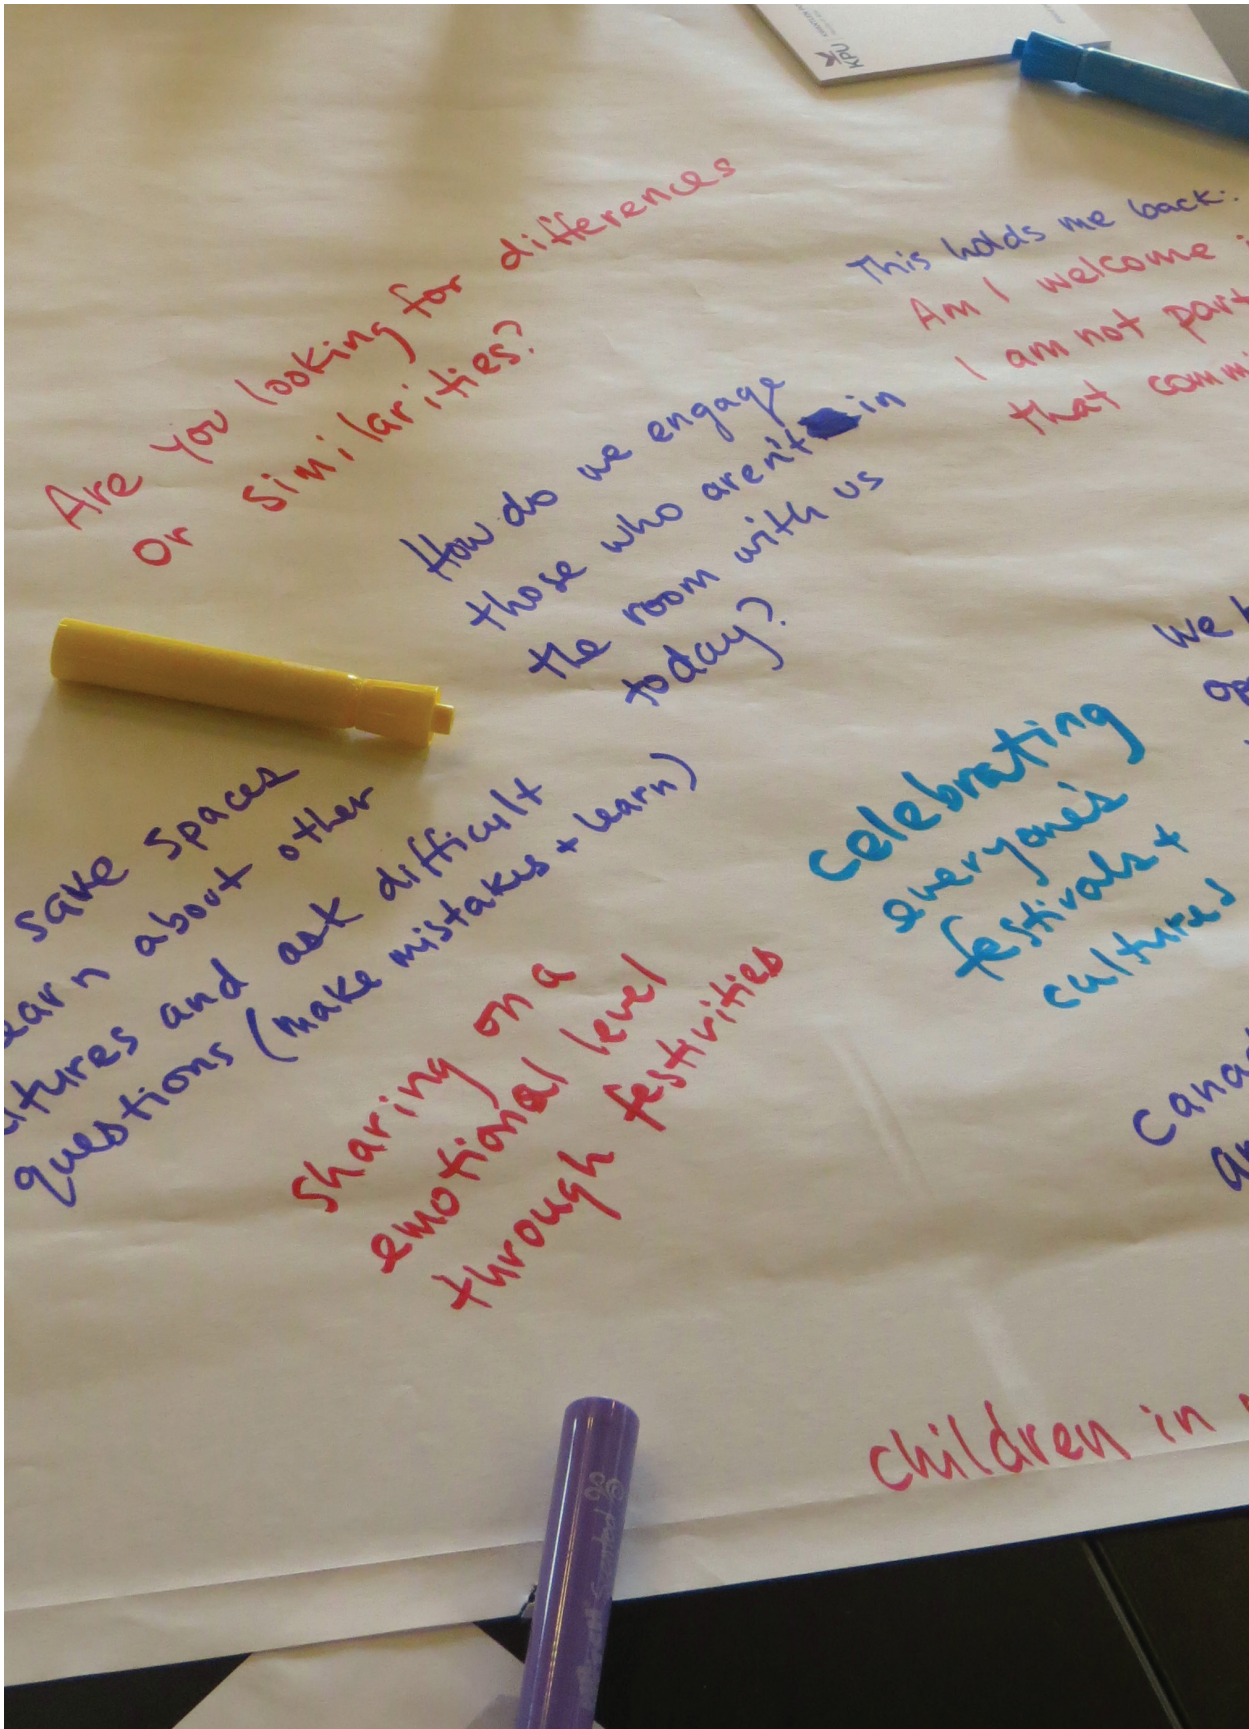 KPU
Are you looking for differences
or similarities?
This holds me back:
Am I welcome i
I am not part
that comm
How do we engage
those who aren't in
the room with us
today?
we
op
save spaces
earn about other
tures and ask difficult
questions (make mistakes + learn)
celebrating
everyone's
festivals +
cultures
sharing on a
emotional level
through festivities
Canad
an
children in
Scented